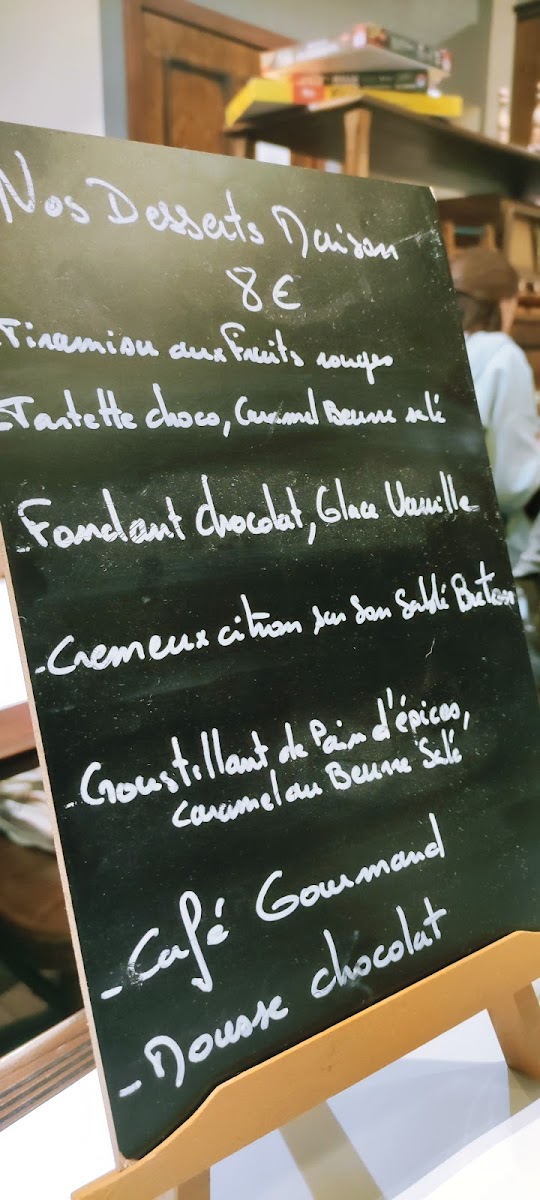 Nos Desserts Maison
8€
-Tiramisu aux Fruits rouges
-Tartette choco, Caramel Beurre salé
-Fondant chocolat, Glace Vanille
-Cremeux citron sur son Sablé Breton
-Croustillant de Pain d'épices,
Caramel au Beurre Salé
-Café Gourmand
-Mousse chocolat